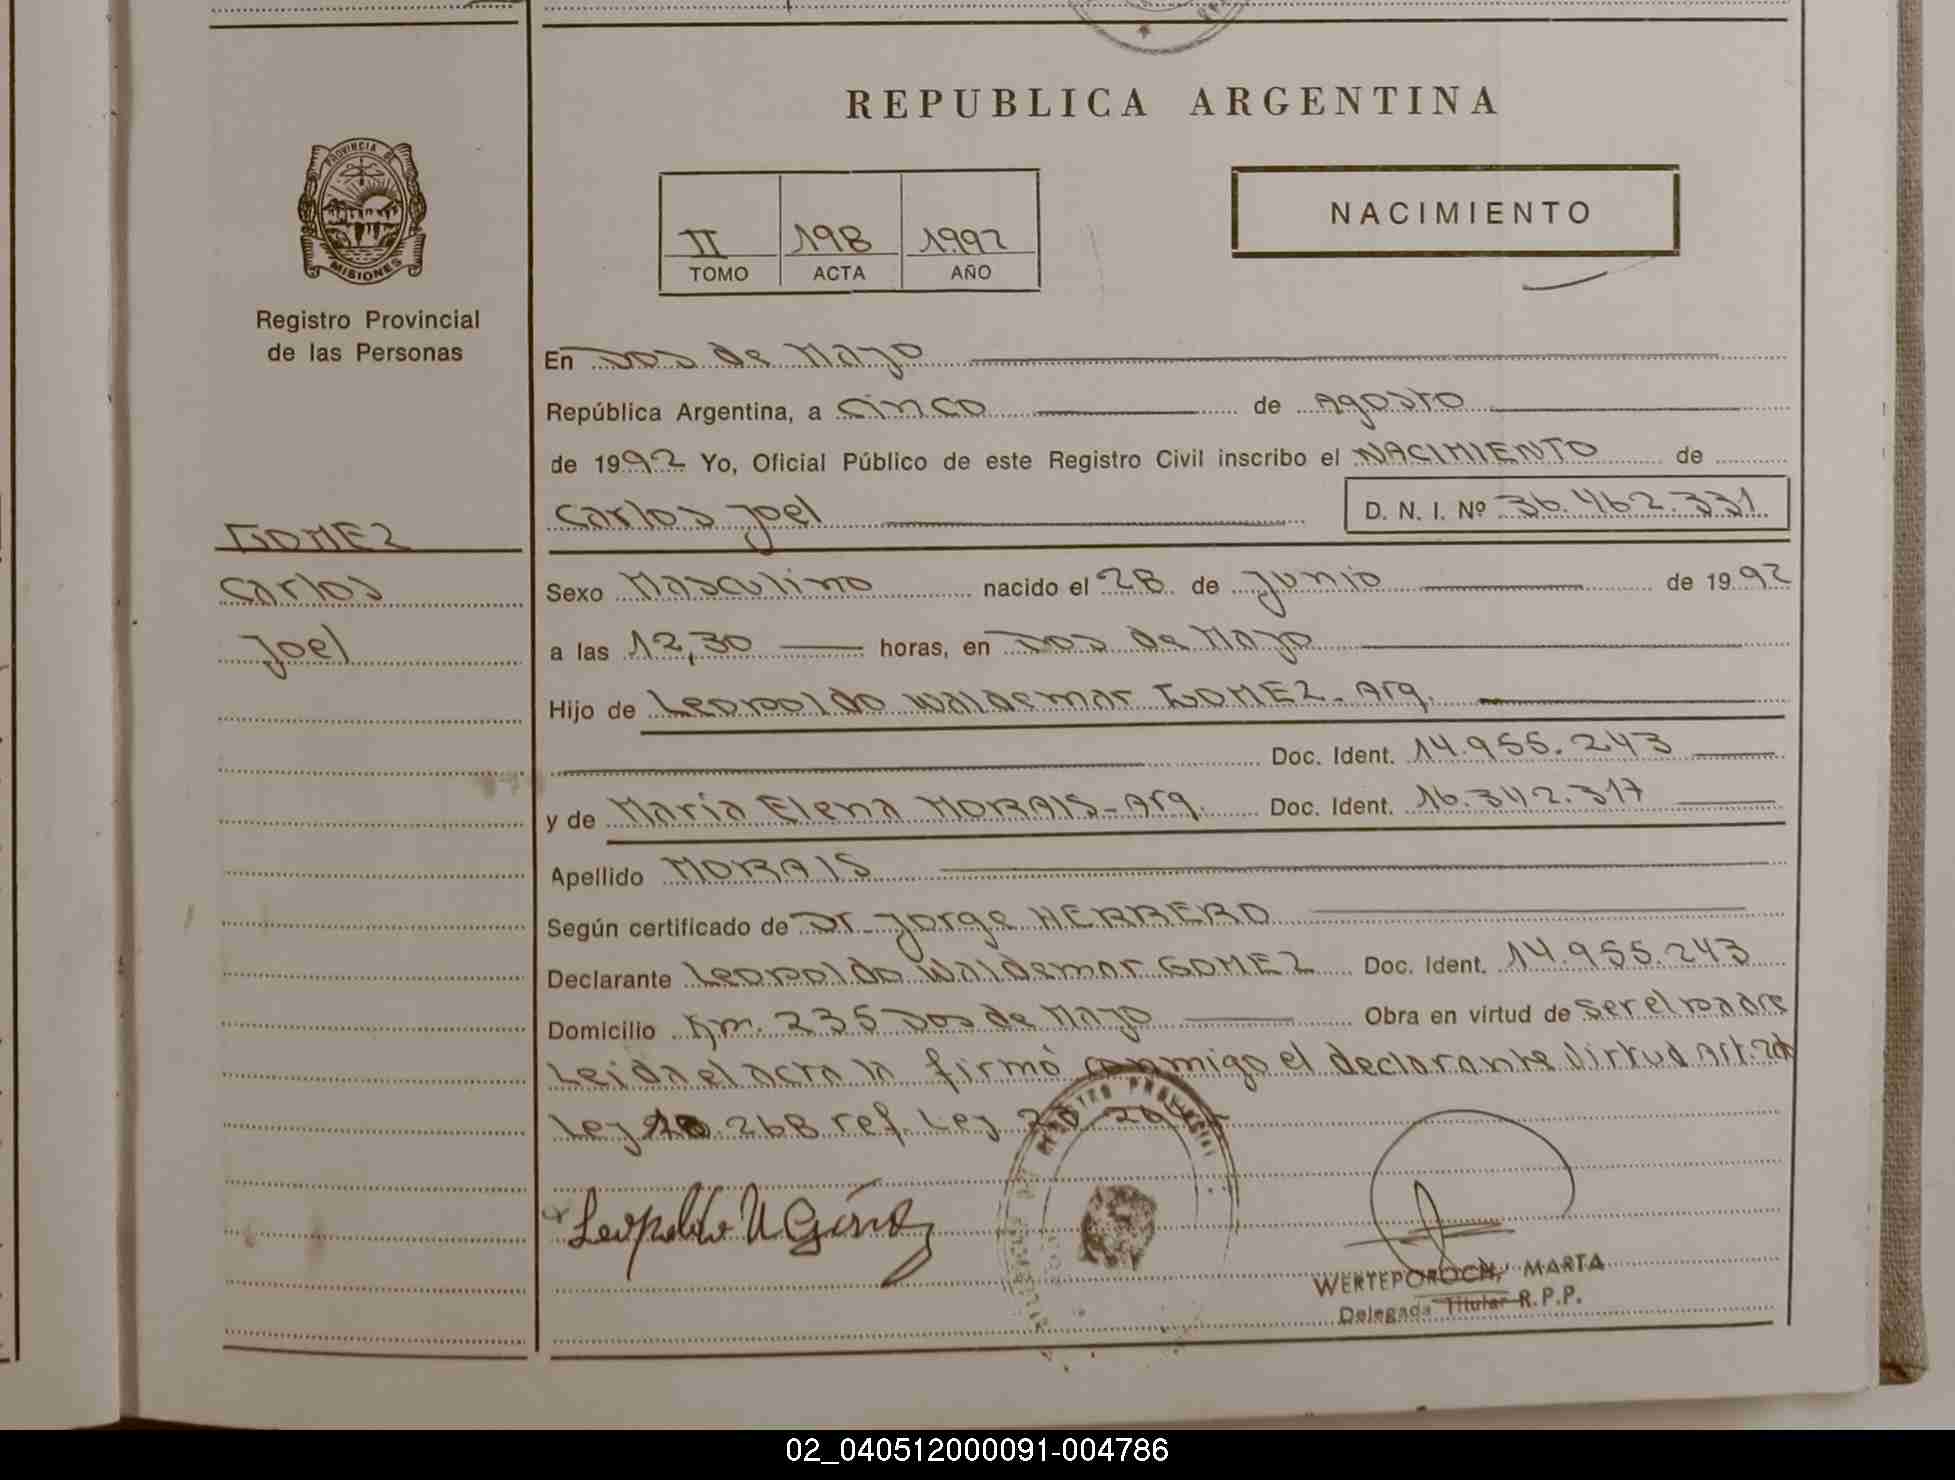 REPUBLICA ARGENTINA
PROVINCIA DE
MISIONES
Registro Provincial
de las Personas
II 198 1992
TOMO ACTA AÑO
NACIMIENTO
En Dos de Mayo
República Argentina, a cinco de Agosto
de 1992 Yo, Oficial Público de este Registro Civil inscribo el NACIMIENTO de
Carlos Joel D. N. I. Nº 36.462.331
GOMEZ
Carlos
Joel
Sexo Masculino nacido el 28 de Junio de 1992
a las 12,30 horas, en Dos de Mayo
Hijo de Leopoldo Waldemar GOMEZ - Arg.
Doc. Ident. 14.955.243
y de María Elena MORAIS - Arg. Doc. Ident. 16.342.317
Apellido MORAIS
Según certificado de Dr. Jorge HERRERO
Declarante Leopoldo Waldemar GOMEZ Doc. Ident. 14.955.243
Domicilio Km. 235 Dos de Mayo Obra en virtud de ser el padre
Leida el acta la firmó conmigo el declarante Virtud Art.
Ley 268 ref. Ley
REGISTRO PROVINCIAL
WERTEPOROCH, MARTA
Delegada Titular R.P.P.
02_040512000091-004786